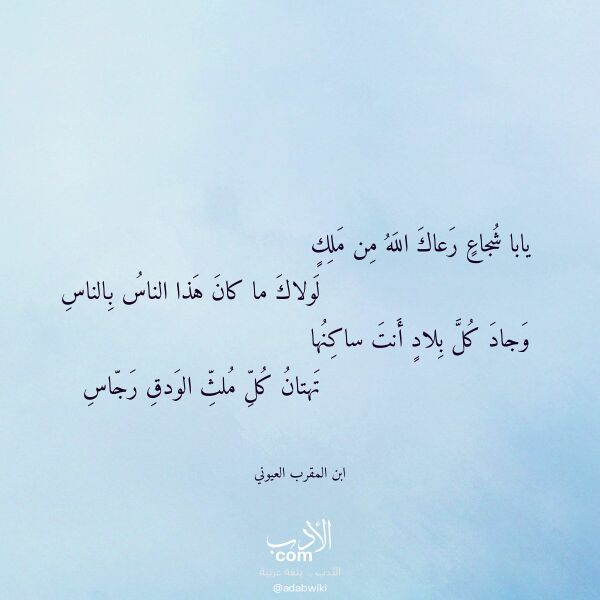 يابا شُجاعٍ رَعاكَ اللَهُ مِن مَلِكٍ
لَولاكَ ما كانَ هَذا الناسُ بِالناسِ
وَجادَ كُلَّ بِلادٍ أَنتَ ساكِنُها
تَهتانُ كُلِّ مُلثِّ الوَدقِ رَجّاسِ
ابن المقرب العيوني
الأدب
com
الأدب .. بلغة عربية
@adabwiki